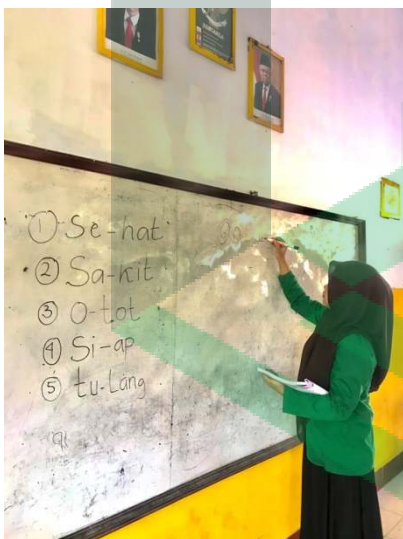 ① Se-hat
② Sa-kit
③ O-tot
④ Si-ap
⑤ tu-Lang